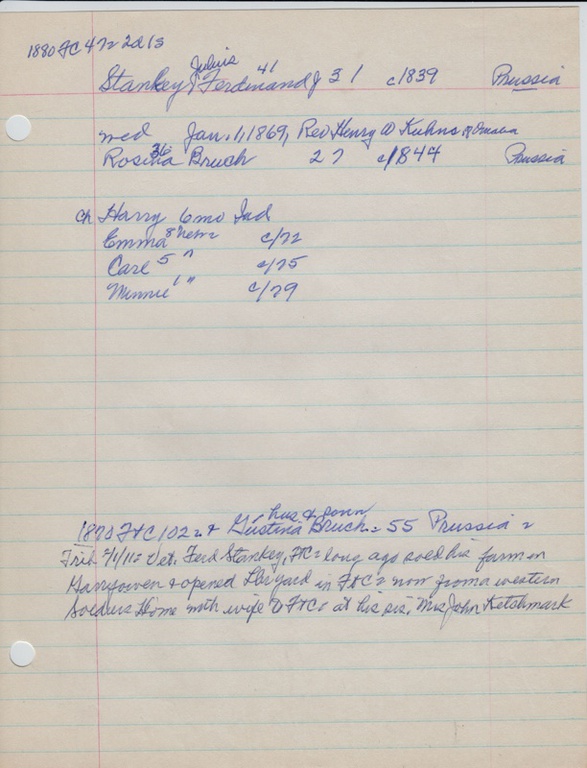 1880 FC 472 2d 13
Julius
Stankey, Ferdinand J 31 c1839 Prussia
41
med Jan. 1, 1869, Rev Henry W Kuhns of Omaha
Rosina Bruch 27 c/1844 Prussia
36
ch Harry 6mo Ind
Emma 8 Neb= c/72
Carl 5 " c/75
Minnie 1 " c/79
hus &
1870 F+C 102 = & Gustina Bruch = 55 Prussia =
Trib. 7/1/11= Vet. Ferd Stankey, F+C= long ago sold his farm on
Garryowen + opened in F+C= now from a western
Soldiers Home with wife F+C= at his sis, Mrs John Ketchmark